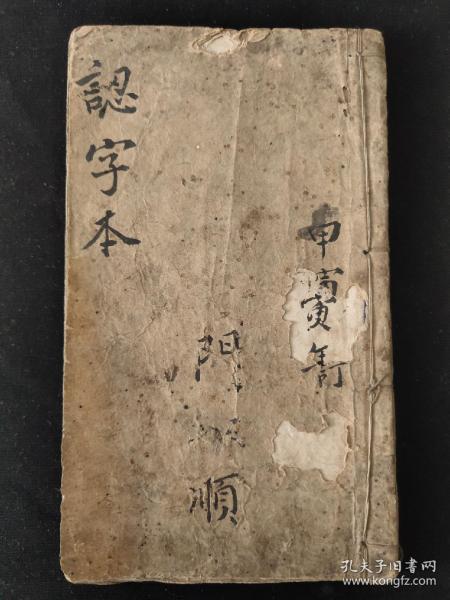 認字本
甲寅年訂
門順
孔夫子旧书网
www.kongfz.com